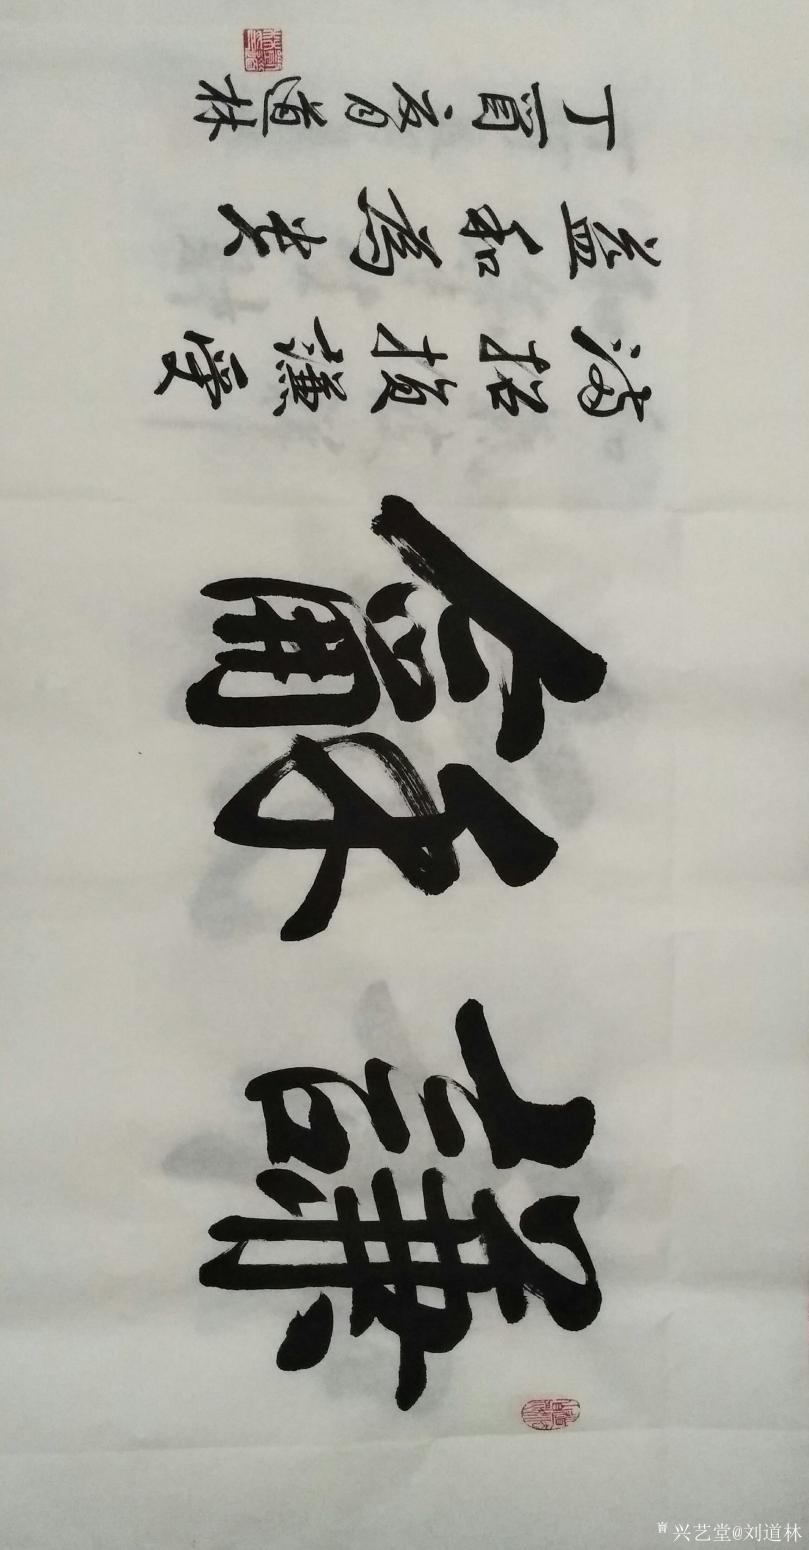 謙龢
滿招損謙受
益和為贵
丁酉夏月道林
兴艺堂@刘道林